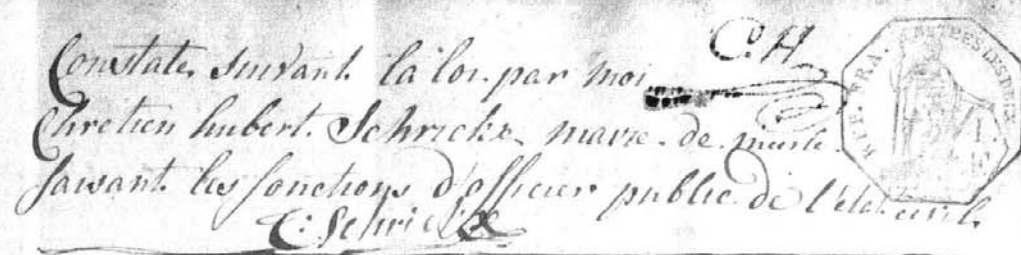 C. H
Constaté suivant la loi par moi
Chretien hubert Schrickx maire de
faisant les fonctions d'officier public de l'état civil
C: Schrickx
REP. FRA.